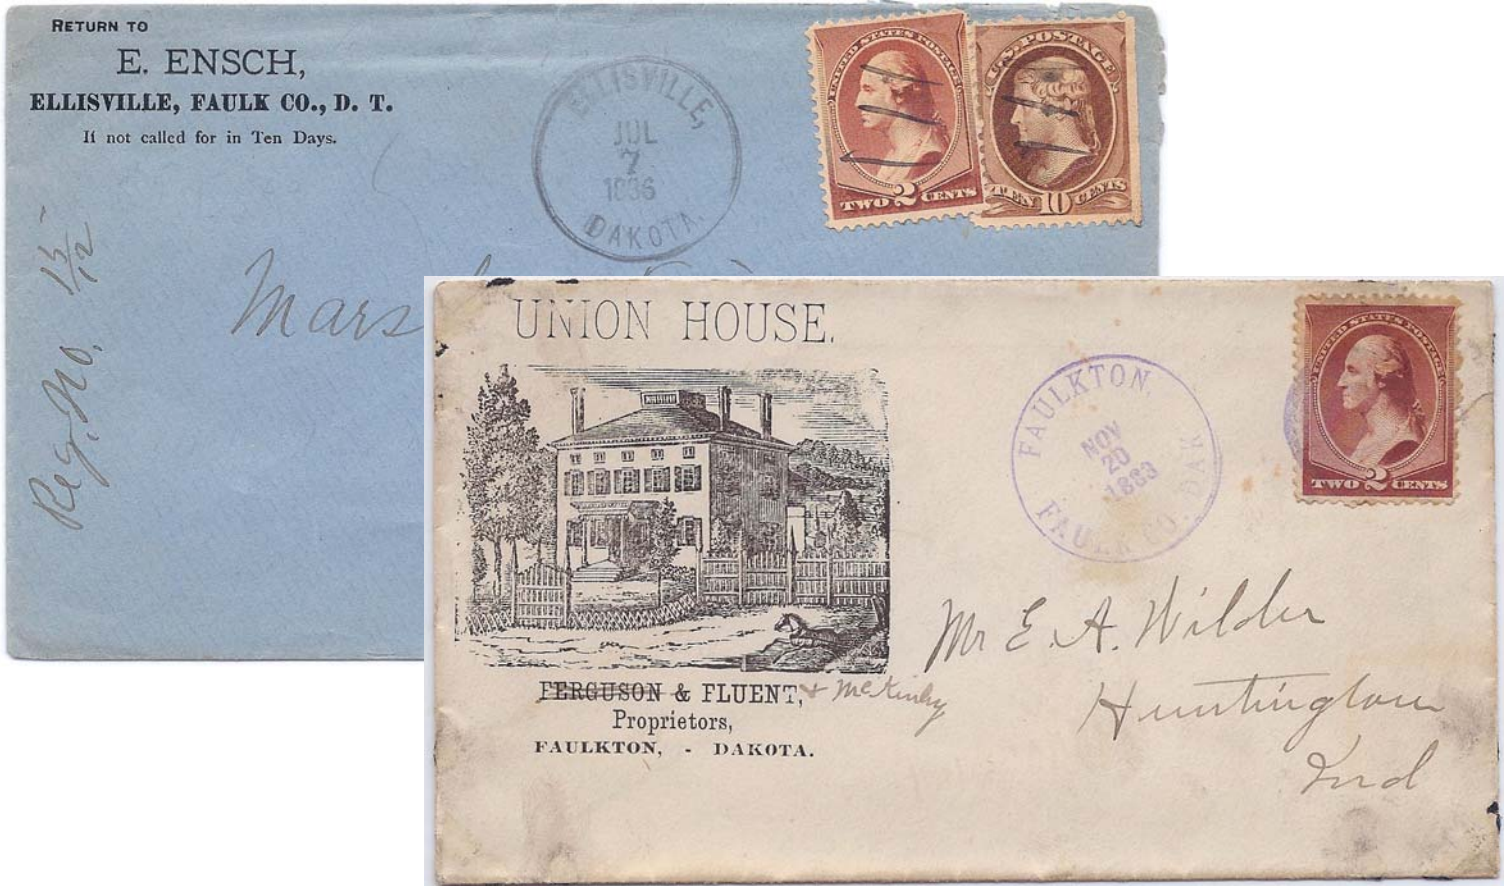 RETURN TO
E. ENSCH,
ELLISVILLE, FAULK CO., D. T.
If not called for in Ten Days.
ELLISVILLE,
JUL
7
1886
DAKOTA.
UNITED STATES POSTAGE
TWO 2 CENTS
U.S. POSTAGE
TEN 10 CENTS
Reg. No. 15/12
Mars
UNION HOUSE.
FERGUSON & FLUENT, & McKinley
Proprietors,
FAULKTON, - DAKOTA.
FAULKTON,
NOV
20
1883
FAULK CO. DAK
UNITED STATES POSTAGE
TWO 2 CENTS
Mr E. A. Wilder
Huntington
Ind